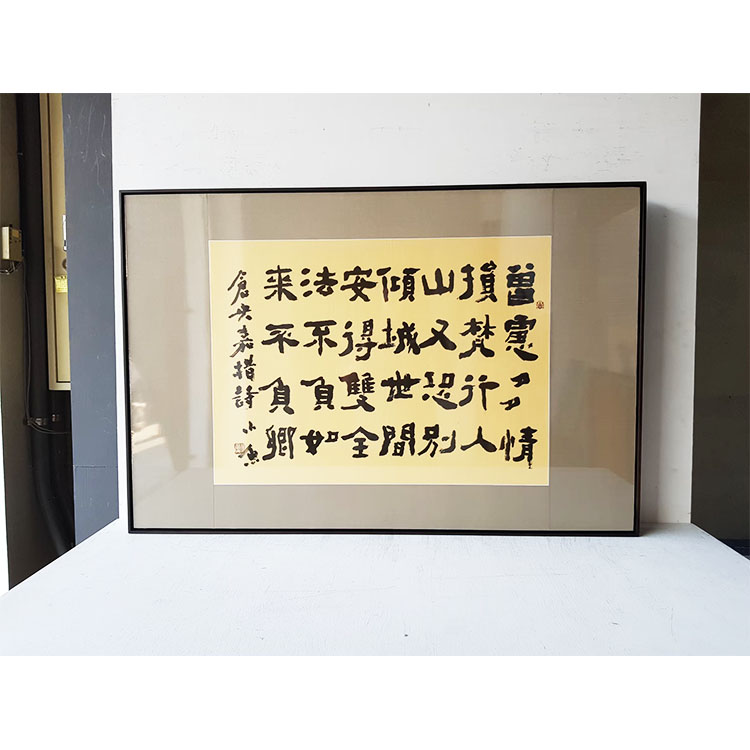 曾慮多情
損梵行入
山又恐別
傾城世間
安得雙全
法不負如
来不負卿
倉央嘉措詩 小魚